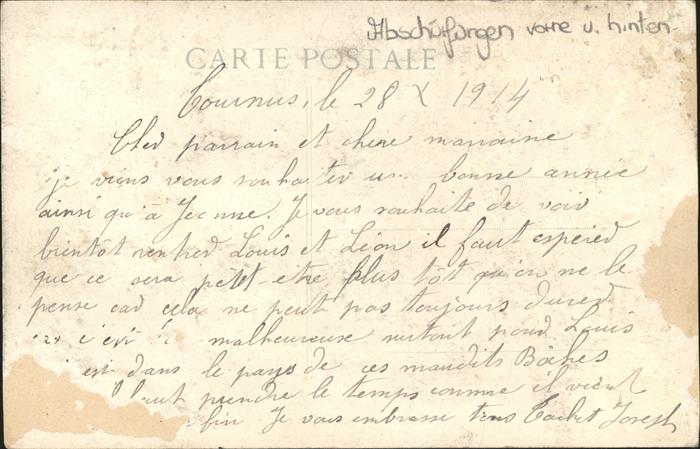 Abschürfungen vorne u. hinten
CARTE POSTALE
Tournus, le 28 X 1914
Cher parrain et chere marraine
je viens vous souhaiter un bonne année
ainsi qu'à Jeanne. Je vous souhaite de voir
bientôt rentrer Louis et Léon il faut espérer
que ce sera petet-etre plus tôt qu'on ne le
pense car cela ne peut pas toujours durer
c'est malheureuse surtout pour Louis
est dans le pays de ces maudits Boches
faut prendre le temps comme il vient
fin Je vous embrasse tous Joseph